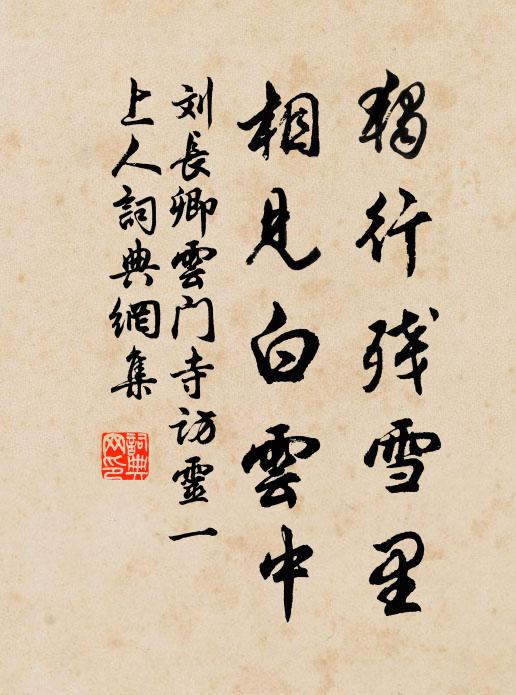 獨行殘雪里
相見白雲中
刘長卿雲门寺訪靈一
上人詞典網集
詞典网印